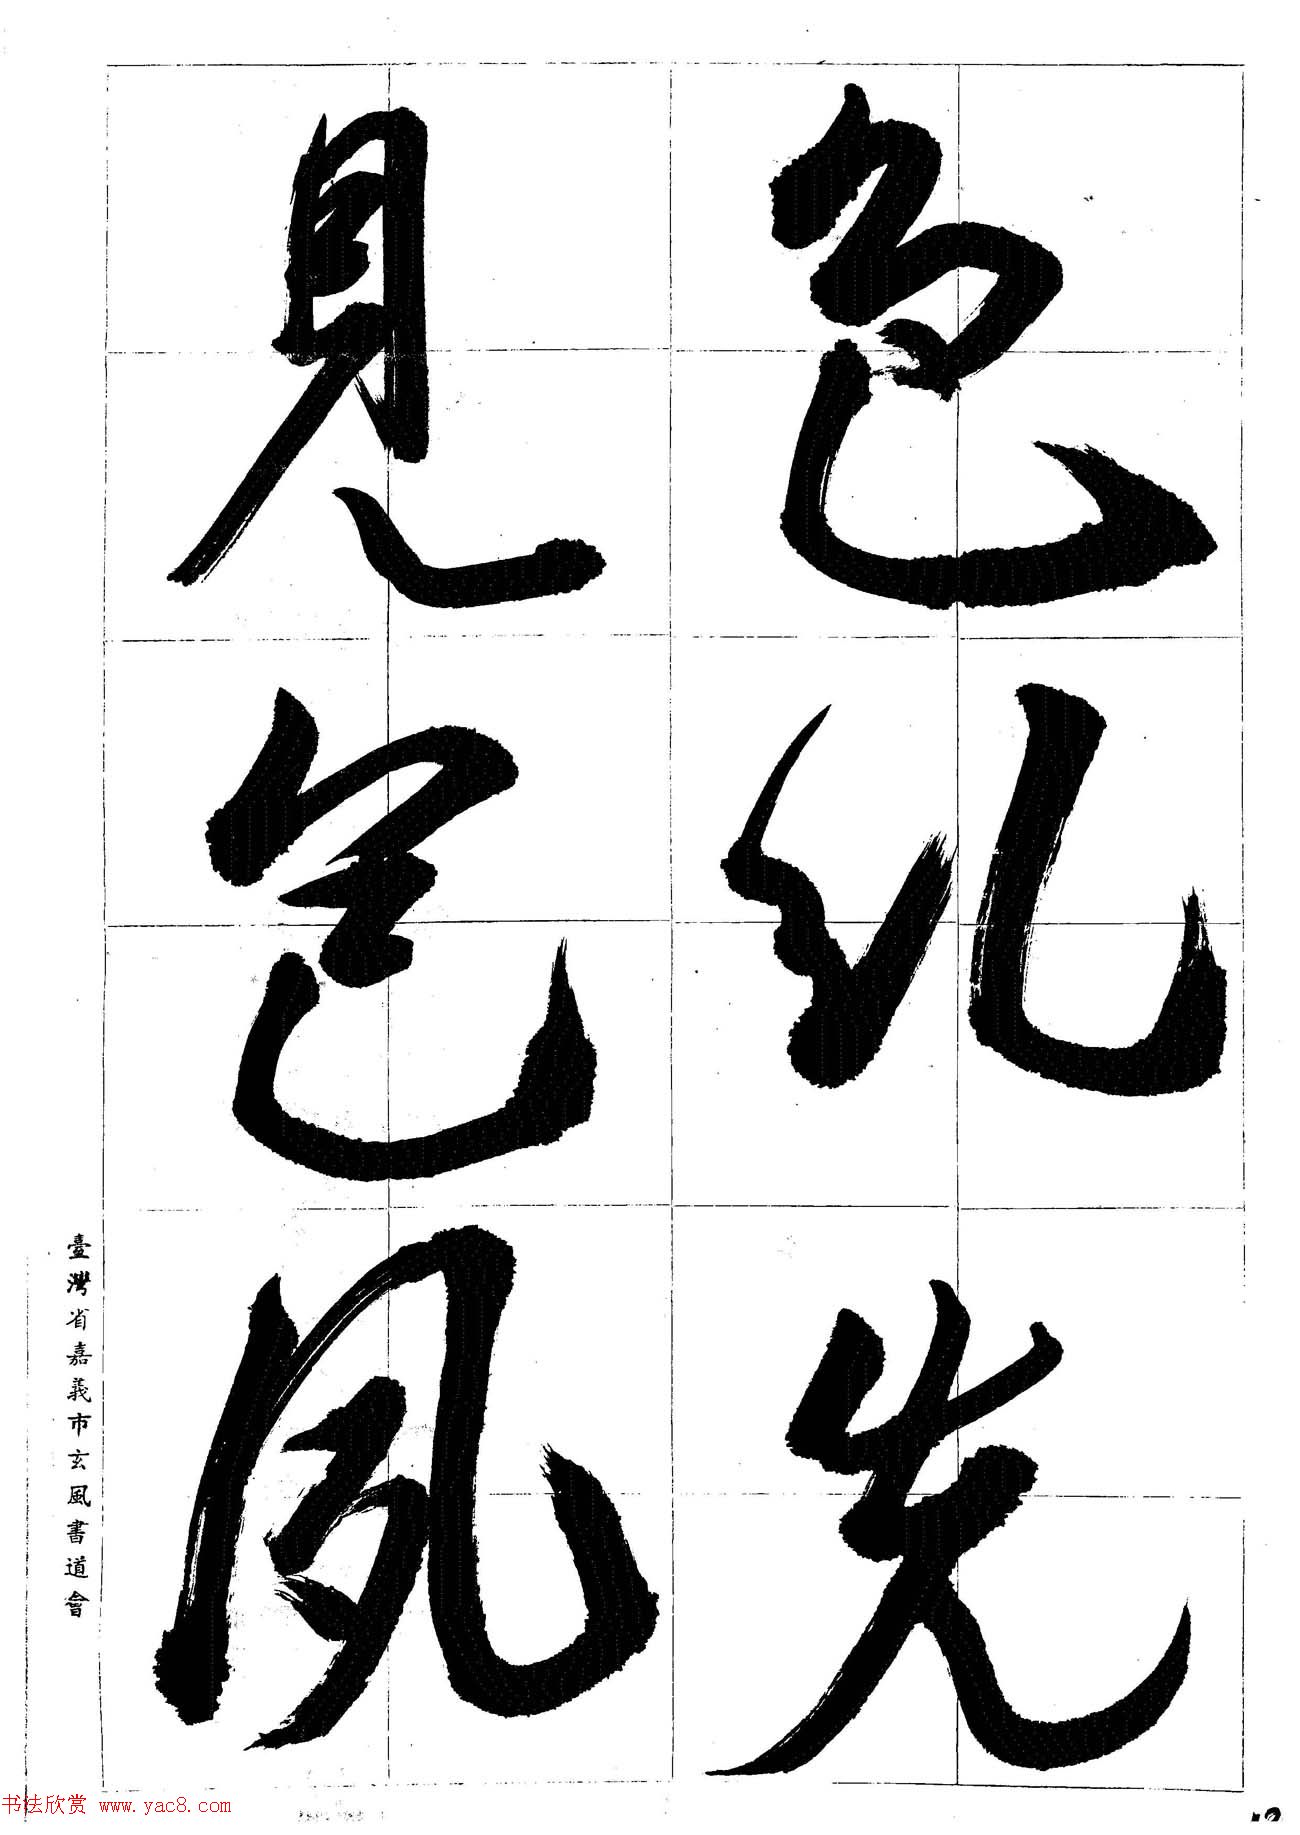 色
先
見
夙
臺灣省嘉義市玄風書道會
书法欣赏 www.yac8.com